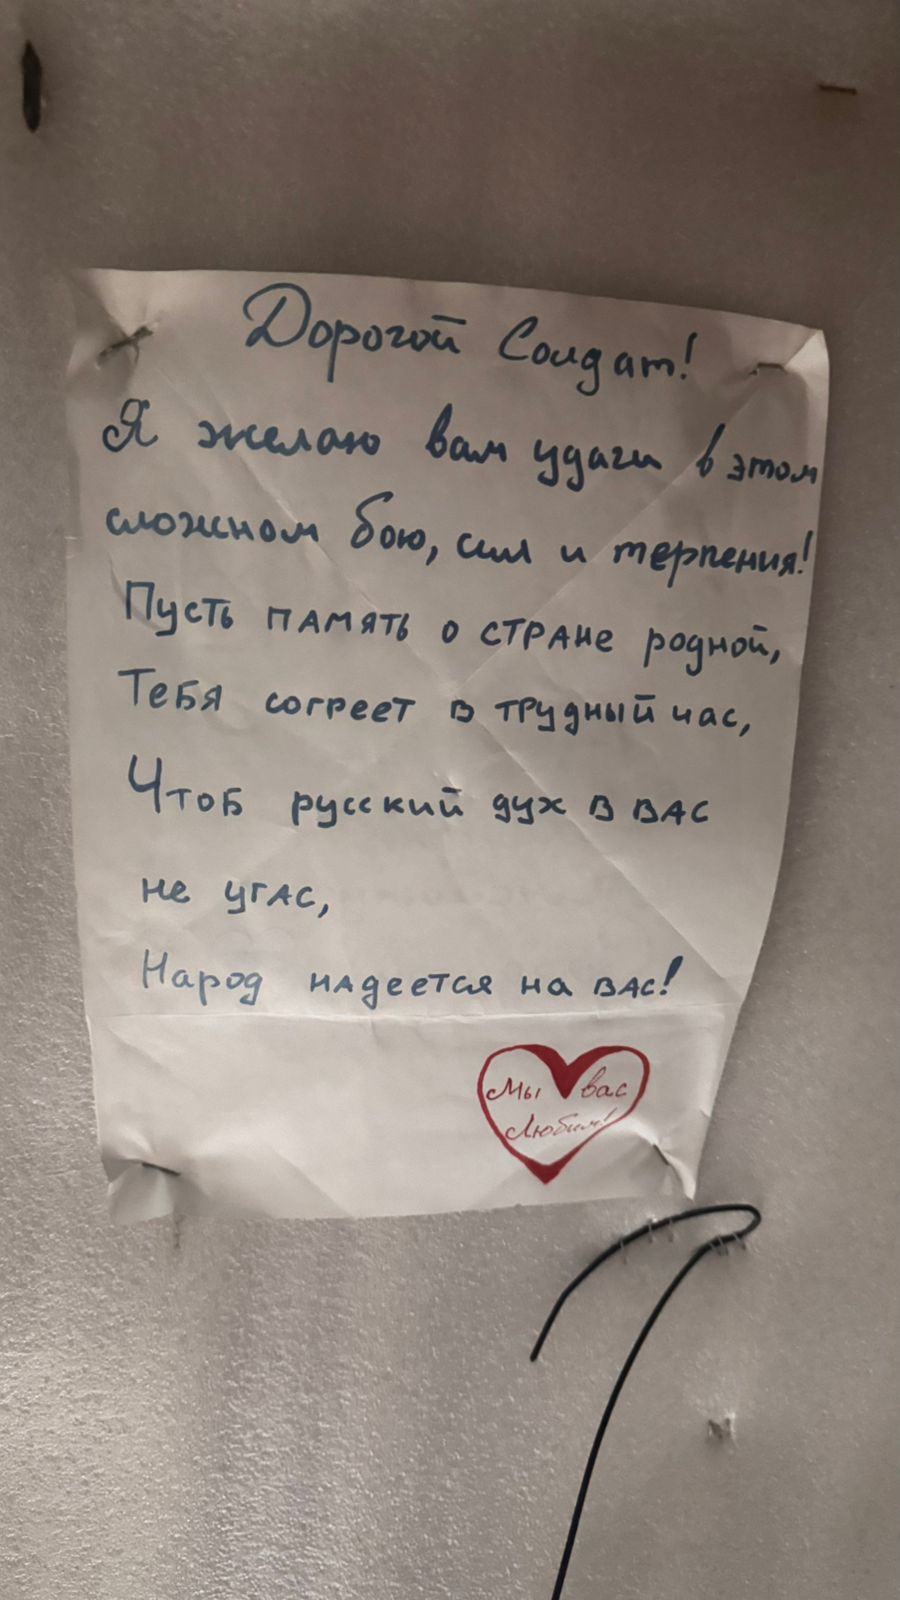 Дорогой Солдат!
Я желаю вам удачи в этом
сложном бою, сил и терпения!
Пусть память о стране родной,
Тебя согреет в трудный час,
Чтоб русский дух в вас
не угас,
Народ надеется на вас!
Мы вас
Любим!